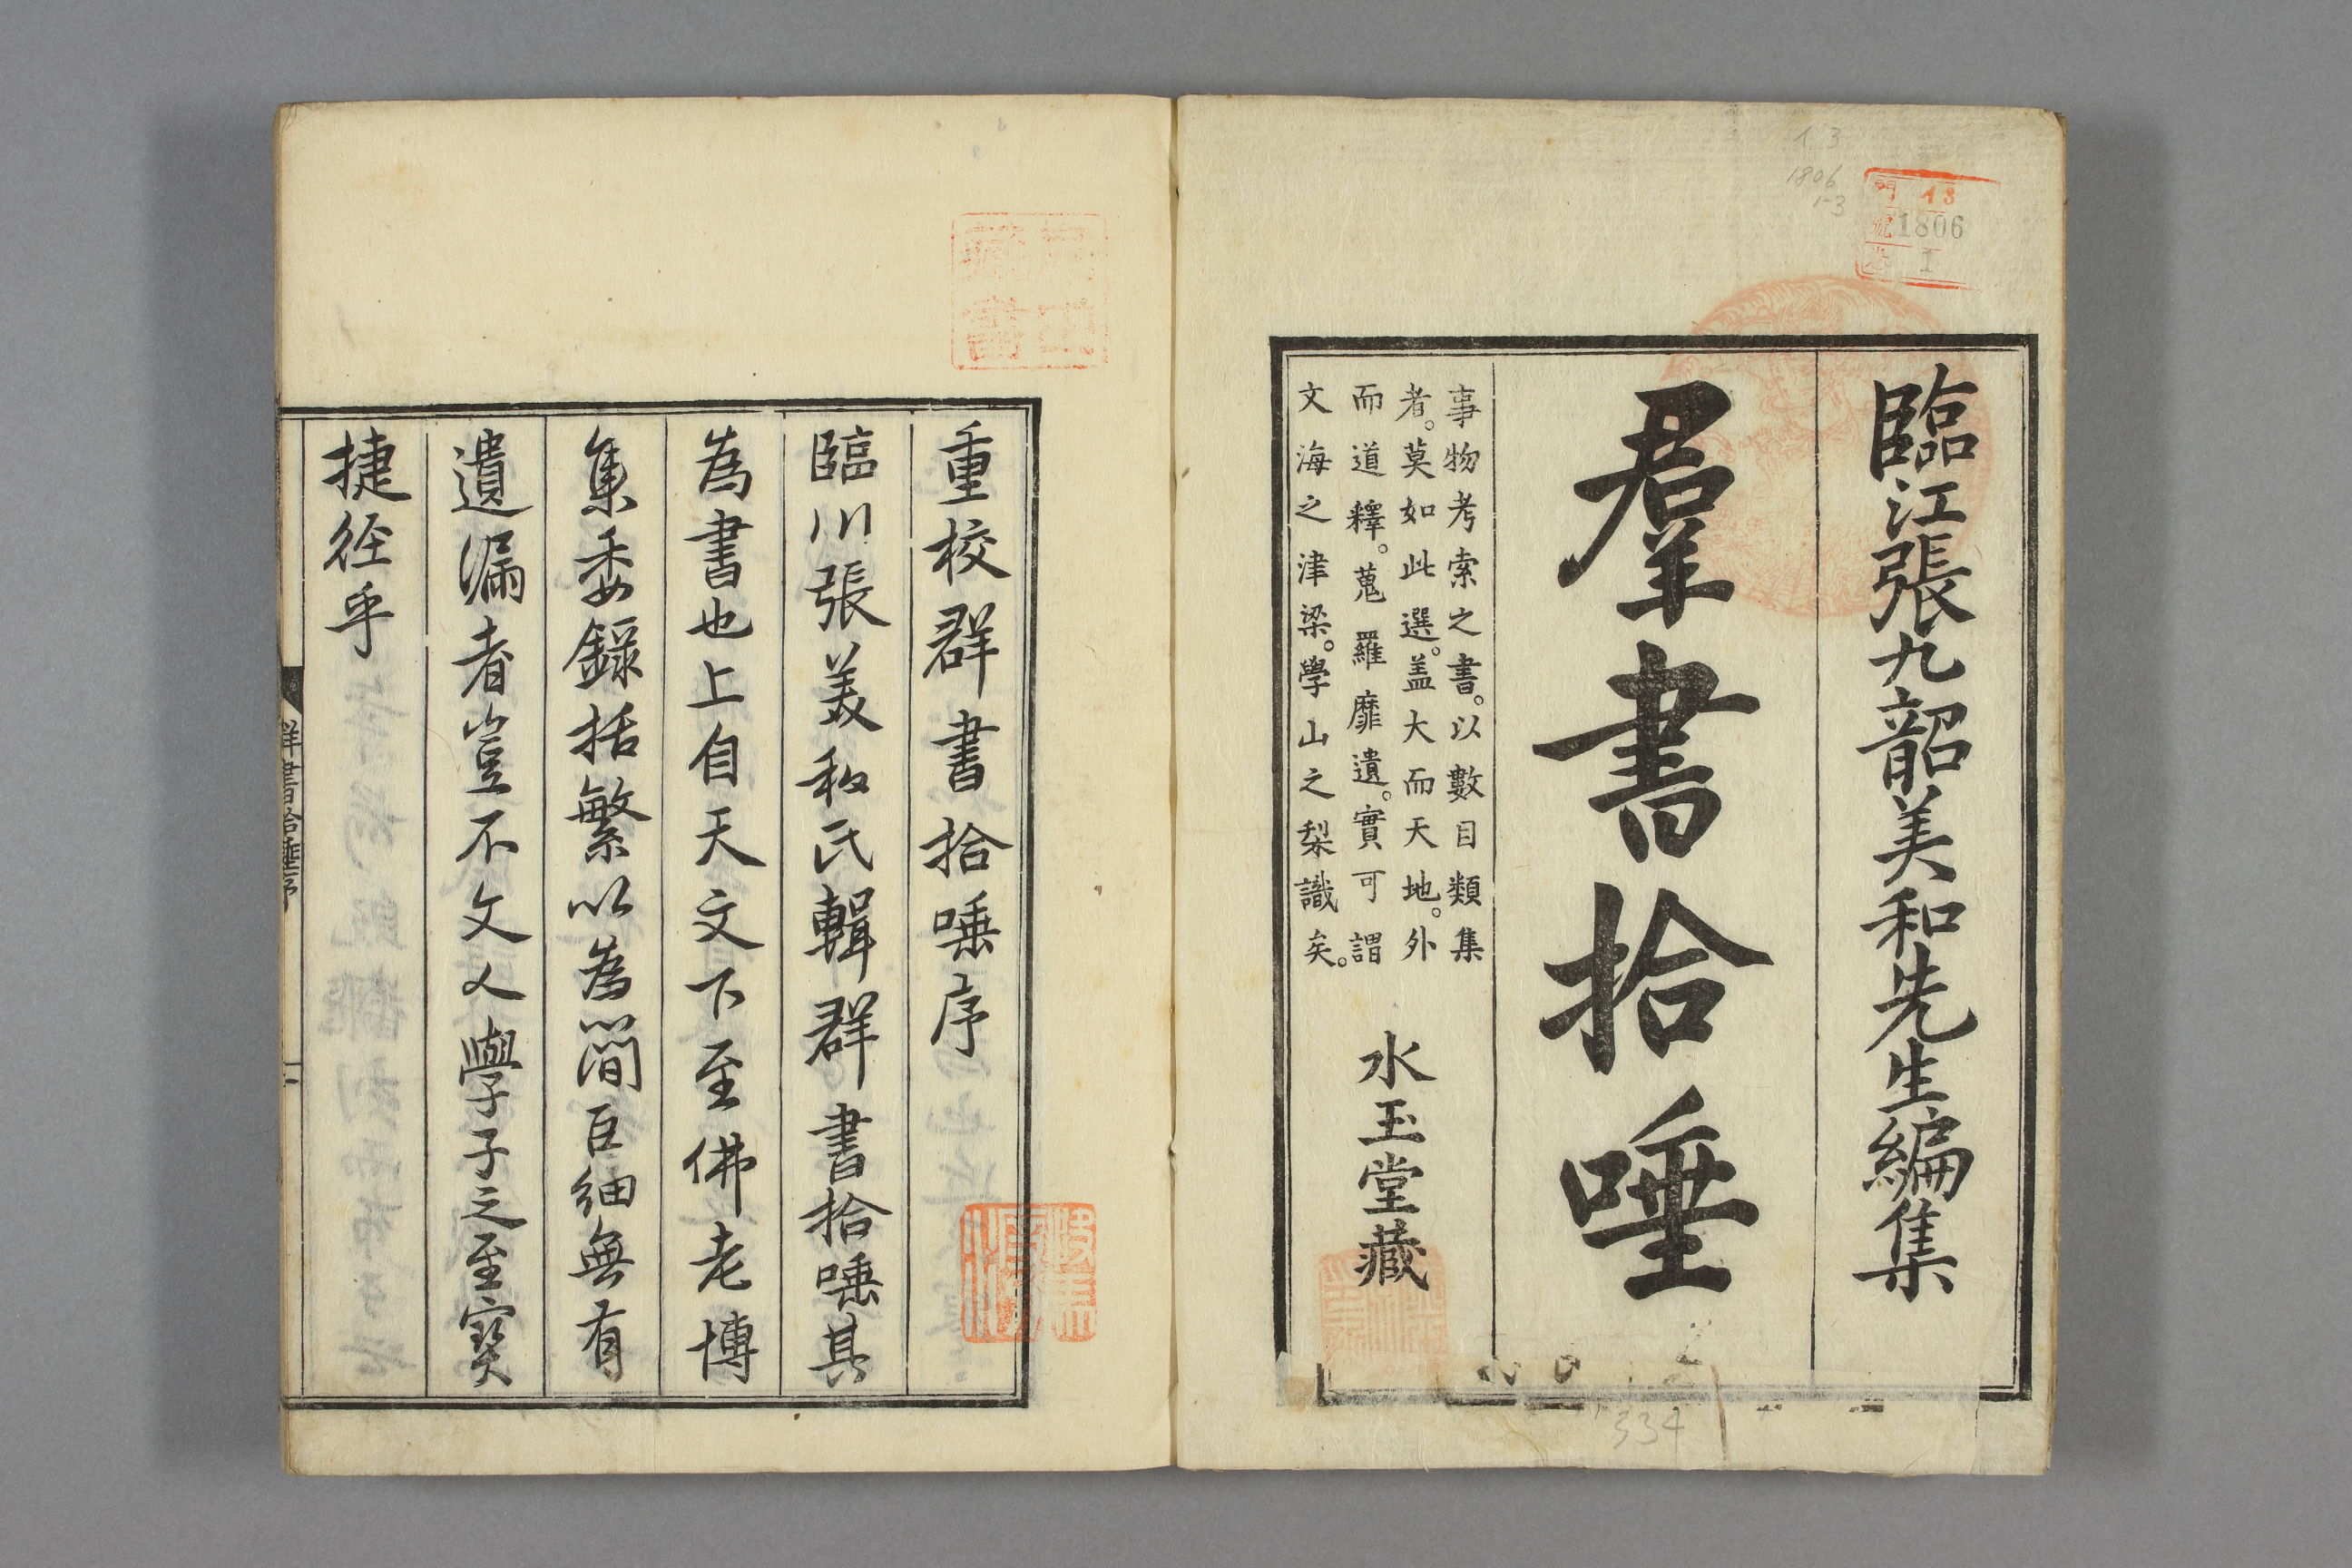 1 3
1806
1-3
門 13
號 1806
卷 I
臨江張九韶美和先生編集
羣書拾唾
事物考索之書。以數目類集
者。莫如此選。盖大而天地。外
而道釋。蒐羅靡遺。實可謂
文海之津梁。學山之梨識矣。
水玉堂藏
334
重校群書拾唾序
臨川張美和氏輯群書拾唾其
為書也上自天文下至佛老博
集委錄括繁以為簡巨細無有
遺漏者豈不文人學子之至寶
捷徑乎
群書拾唾序
一